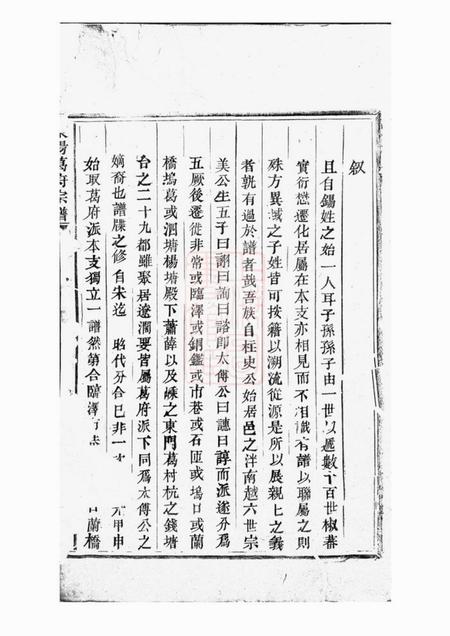 叙
且自錫姓之始一人耳子孫孫子由一世以遞數十百世椒蕃
實衍愆遷化居屬在本支亦相見而不相識有譜以聯屬之則
殊方異域之子姓皆可按籍以溯流從源是所以展親上之義
者孰有過於譜者哉吾族自柱史公始居邑之泮南越六世宗
美公生五子曰詡曰詢曰諮即太傅公曰譓曰諄而派遂分爲
五厥後遷徙非常或臨澤或銅鑑或市巷或石匝或塢口或蘭
橋塢葛或泗塘楊塘殿下蕭薛以及嵊之東門葛村杭之錢塘
台之二十九都雖聚居遼濶要皆屬葛府派下同爲太傅公之
嫡裔也譜牒之修自宋迄 昭代分合已非一 甲申
始取葛府派本支獨立一譜然第合臨澤 蘭橋
葛府宗譜